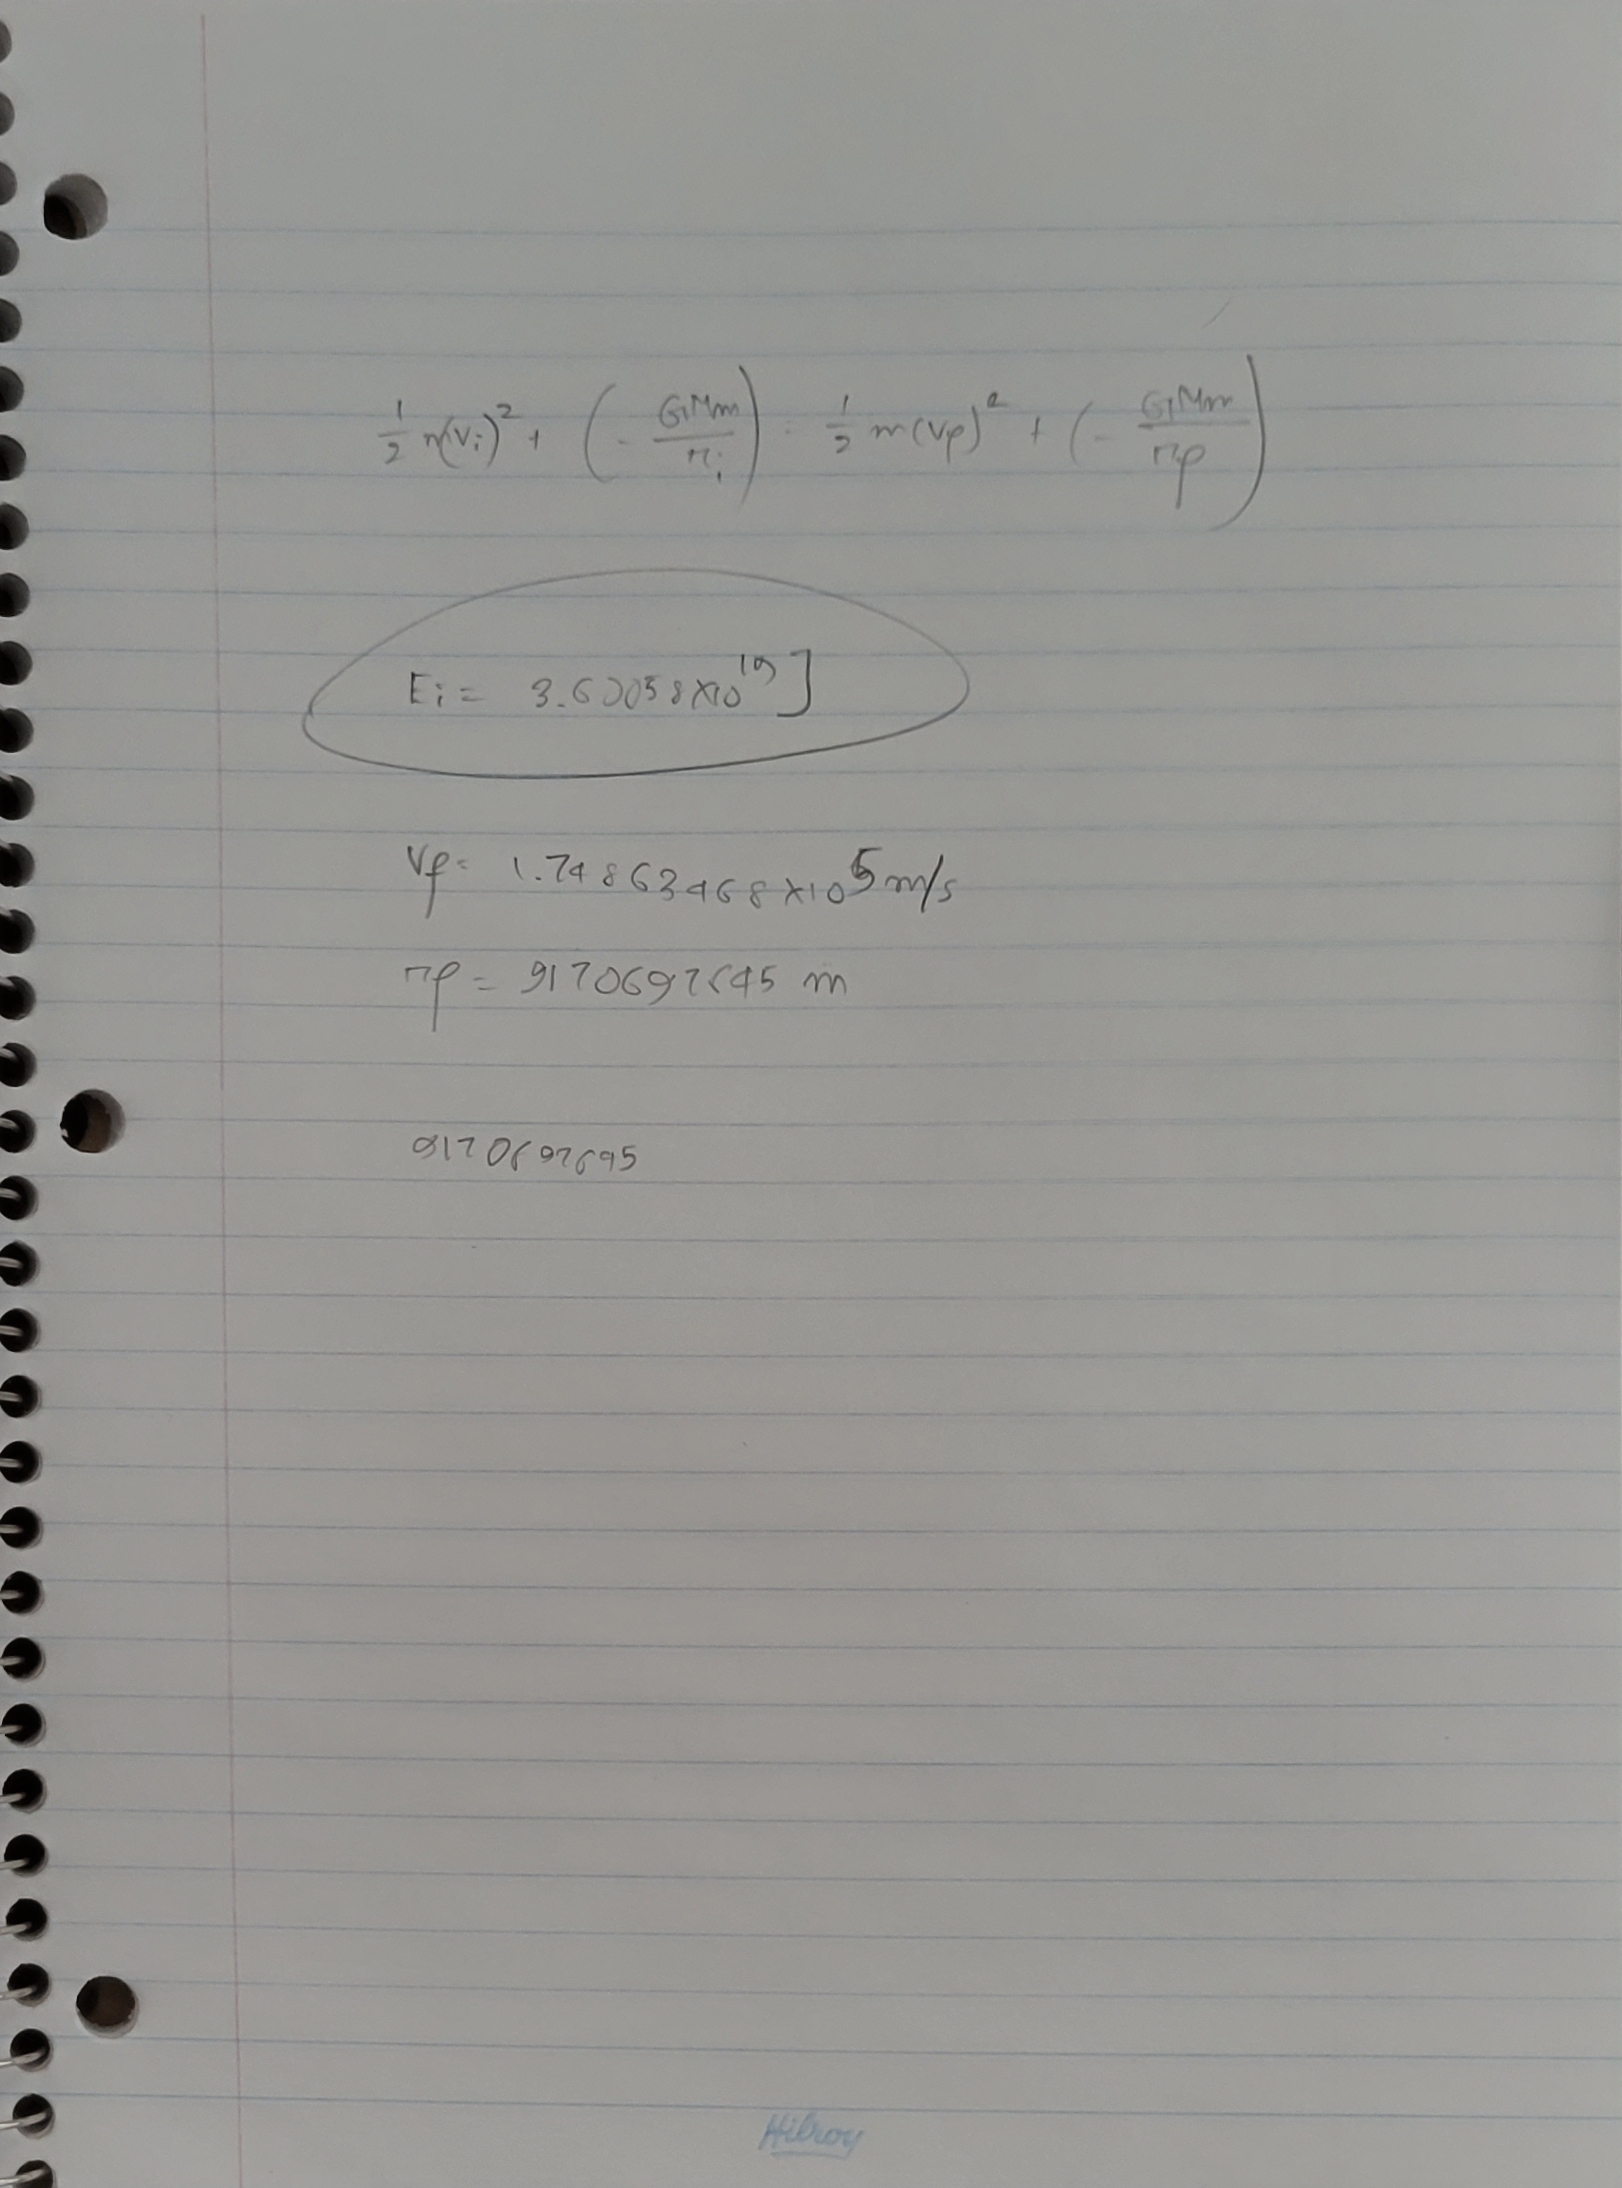 1/2 m(vi)² + (- GMm/ri) = 1/2 m(vp)² + (- GMm/rp)
Ei = 3.60058×10¹⁹ J
Vp = 1.74863468×10⁵ m/s
rp = 9170697645 m
9170697645
Hilroy